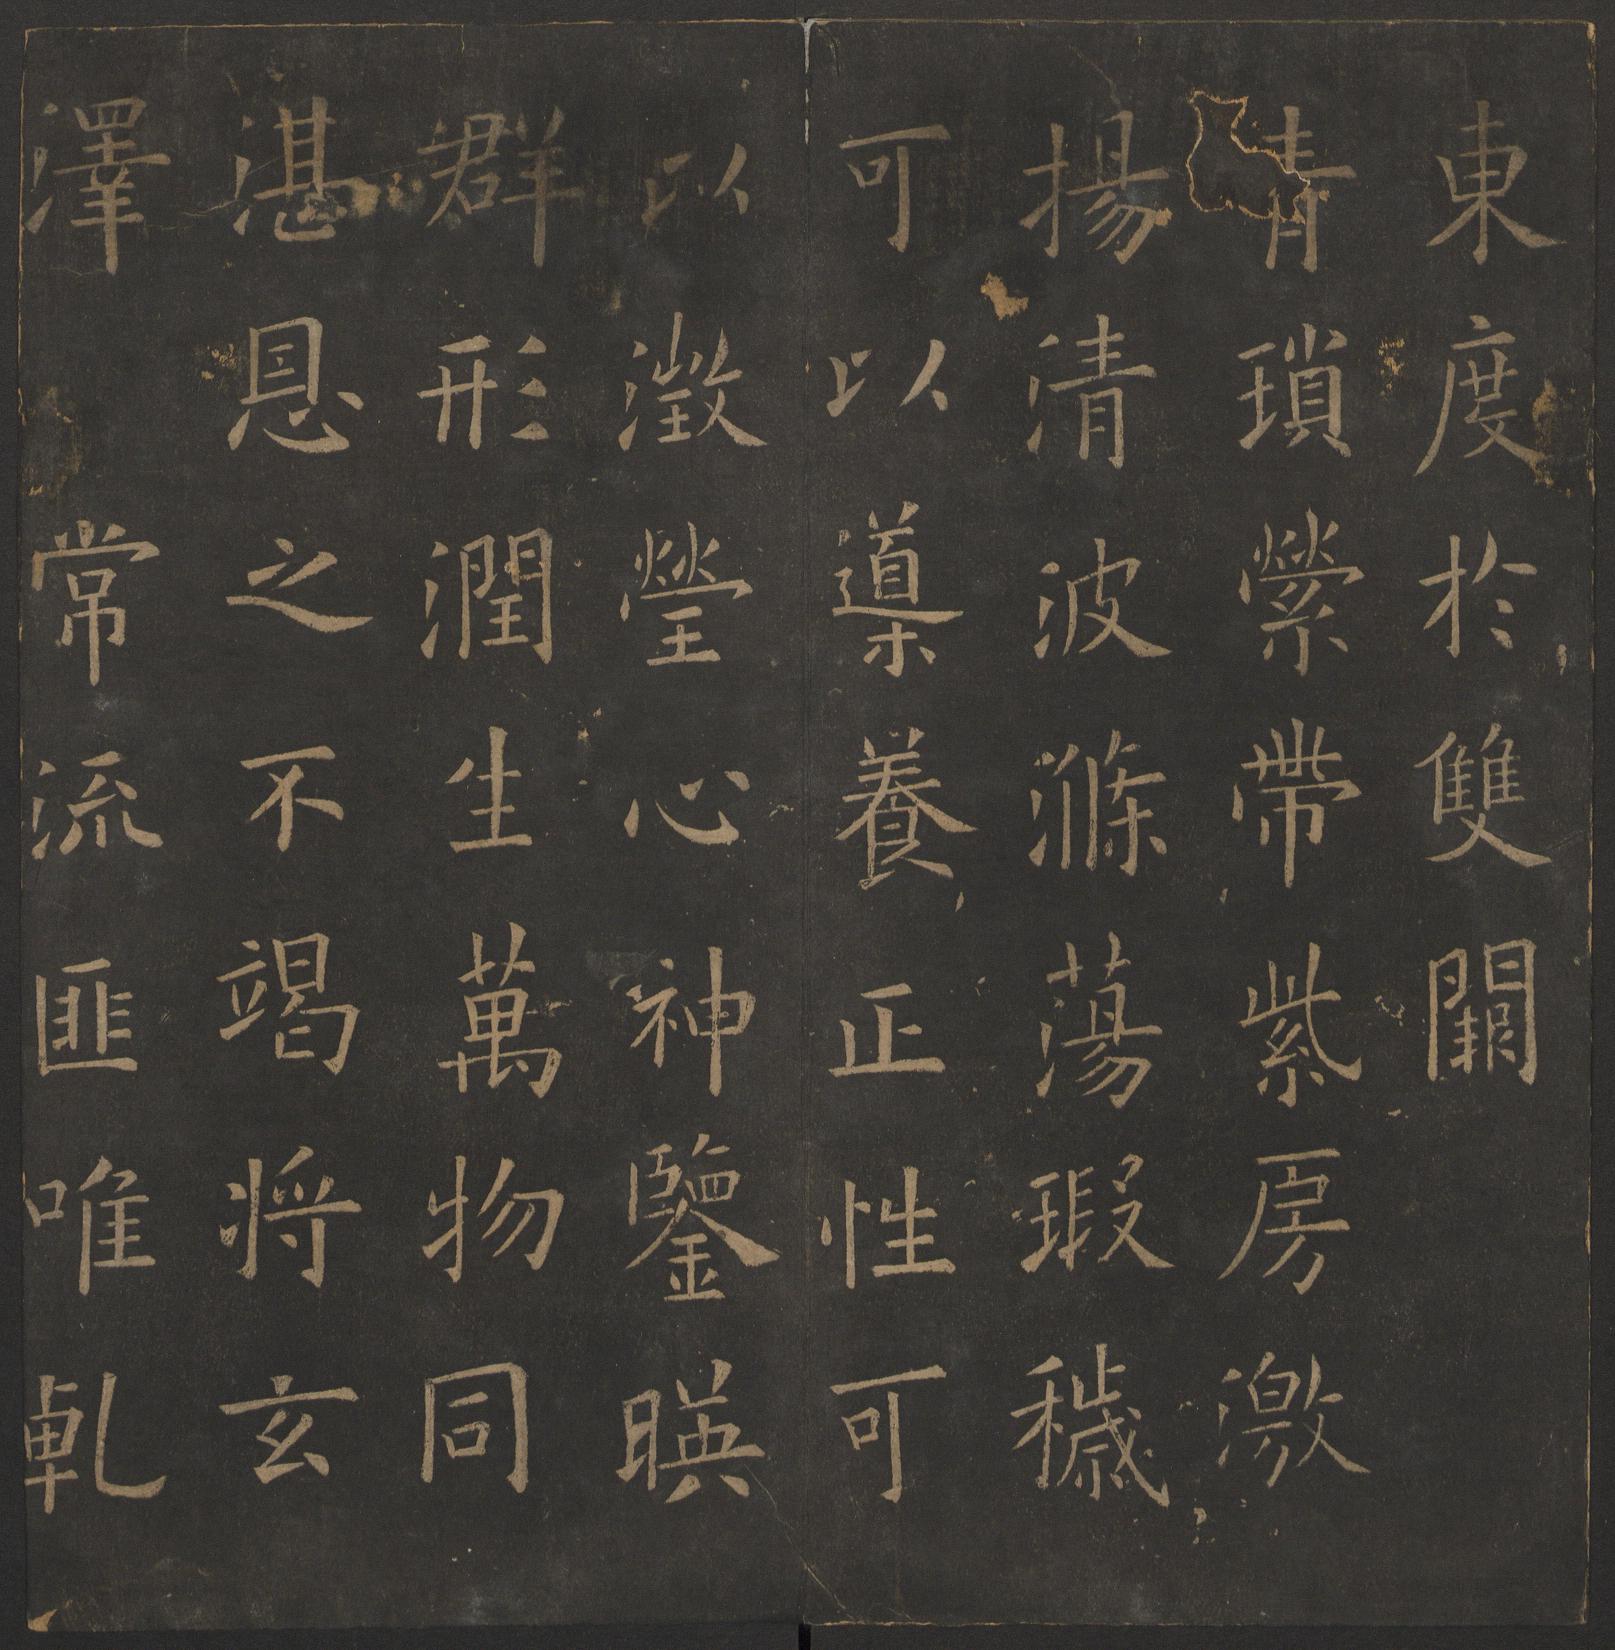 東度於雙闕
青瑣縈帶紫房激
揚清波滌蕩瑕穢
可以導養正性可
以澂瑩心神鑒暎
群形潤生萬物同
湛恩之不竭將玄
澤常流匪唯乹